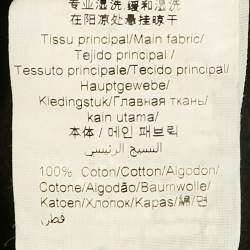 专业湿洗,缓和湿洗
在阳凉处悬挂晾干
Tissu principal/Main fabric/
Tejido principal /
Tessuto principale/Tecido principal/
Hauptgewebe/
Kledingstuk/Главная ткань/
kain utama/
本体 / 메인 패브릭
النسيج الرئيسي
100% Coton/Cotton/Algodon/
Cotone/Algodão/Baumwolle/
Katoen/Хлопок/Kapas/綿/면
قطن